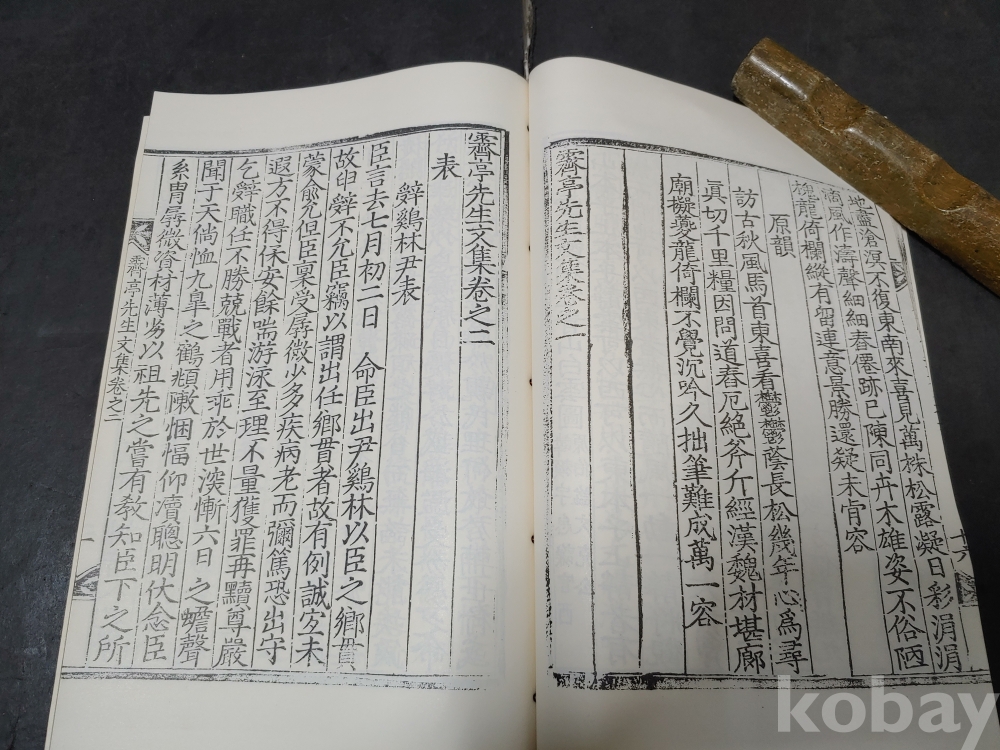 地盡滄溟不復東南來喜見萬株松露凝日彩涓涓
滴風作濤聲細細舂僊跡已陳同卉木雄姿不俗陋
夔龍倚欄縱有留連意景勝還疑未肯容
原韻
訪古秋風馬首東喜看鬱鬱蔭長松幾年心爲尋
眞切千里糧因問道舂厄絶斧斤經漢魏材堪廊
廟擬夔龍倚欄不覺沉吟久拙筆難成萬一容
霽亭先生文集卷之一
十六
霽亭先生文集卷之二
表
辭鷄林尹表
臣言去七月初二日 命臣出尹鷄林以臣之鄕貫
故卽辭不允臣竊以謂出任鄕貫者故有例誠宜未
蒙兪允但臣稟受孱微少多疾病老而彌篤恐出守
遐方不得保安餘喘游泳至理不量獲罪再黷尊嚴
乞辭職任不勝兢戰者用乖於世深慚六日之蟾聲
聞于天倘恤九臯之鶴頫陳悃愊仰瀆聰明伏念臣
系胄孱微資材薄劣以祖先之嘗有敎知臣下之所
霽亭先生文集卷之二
一
kobay